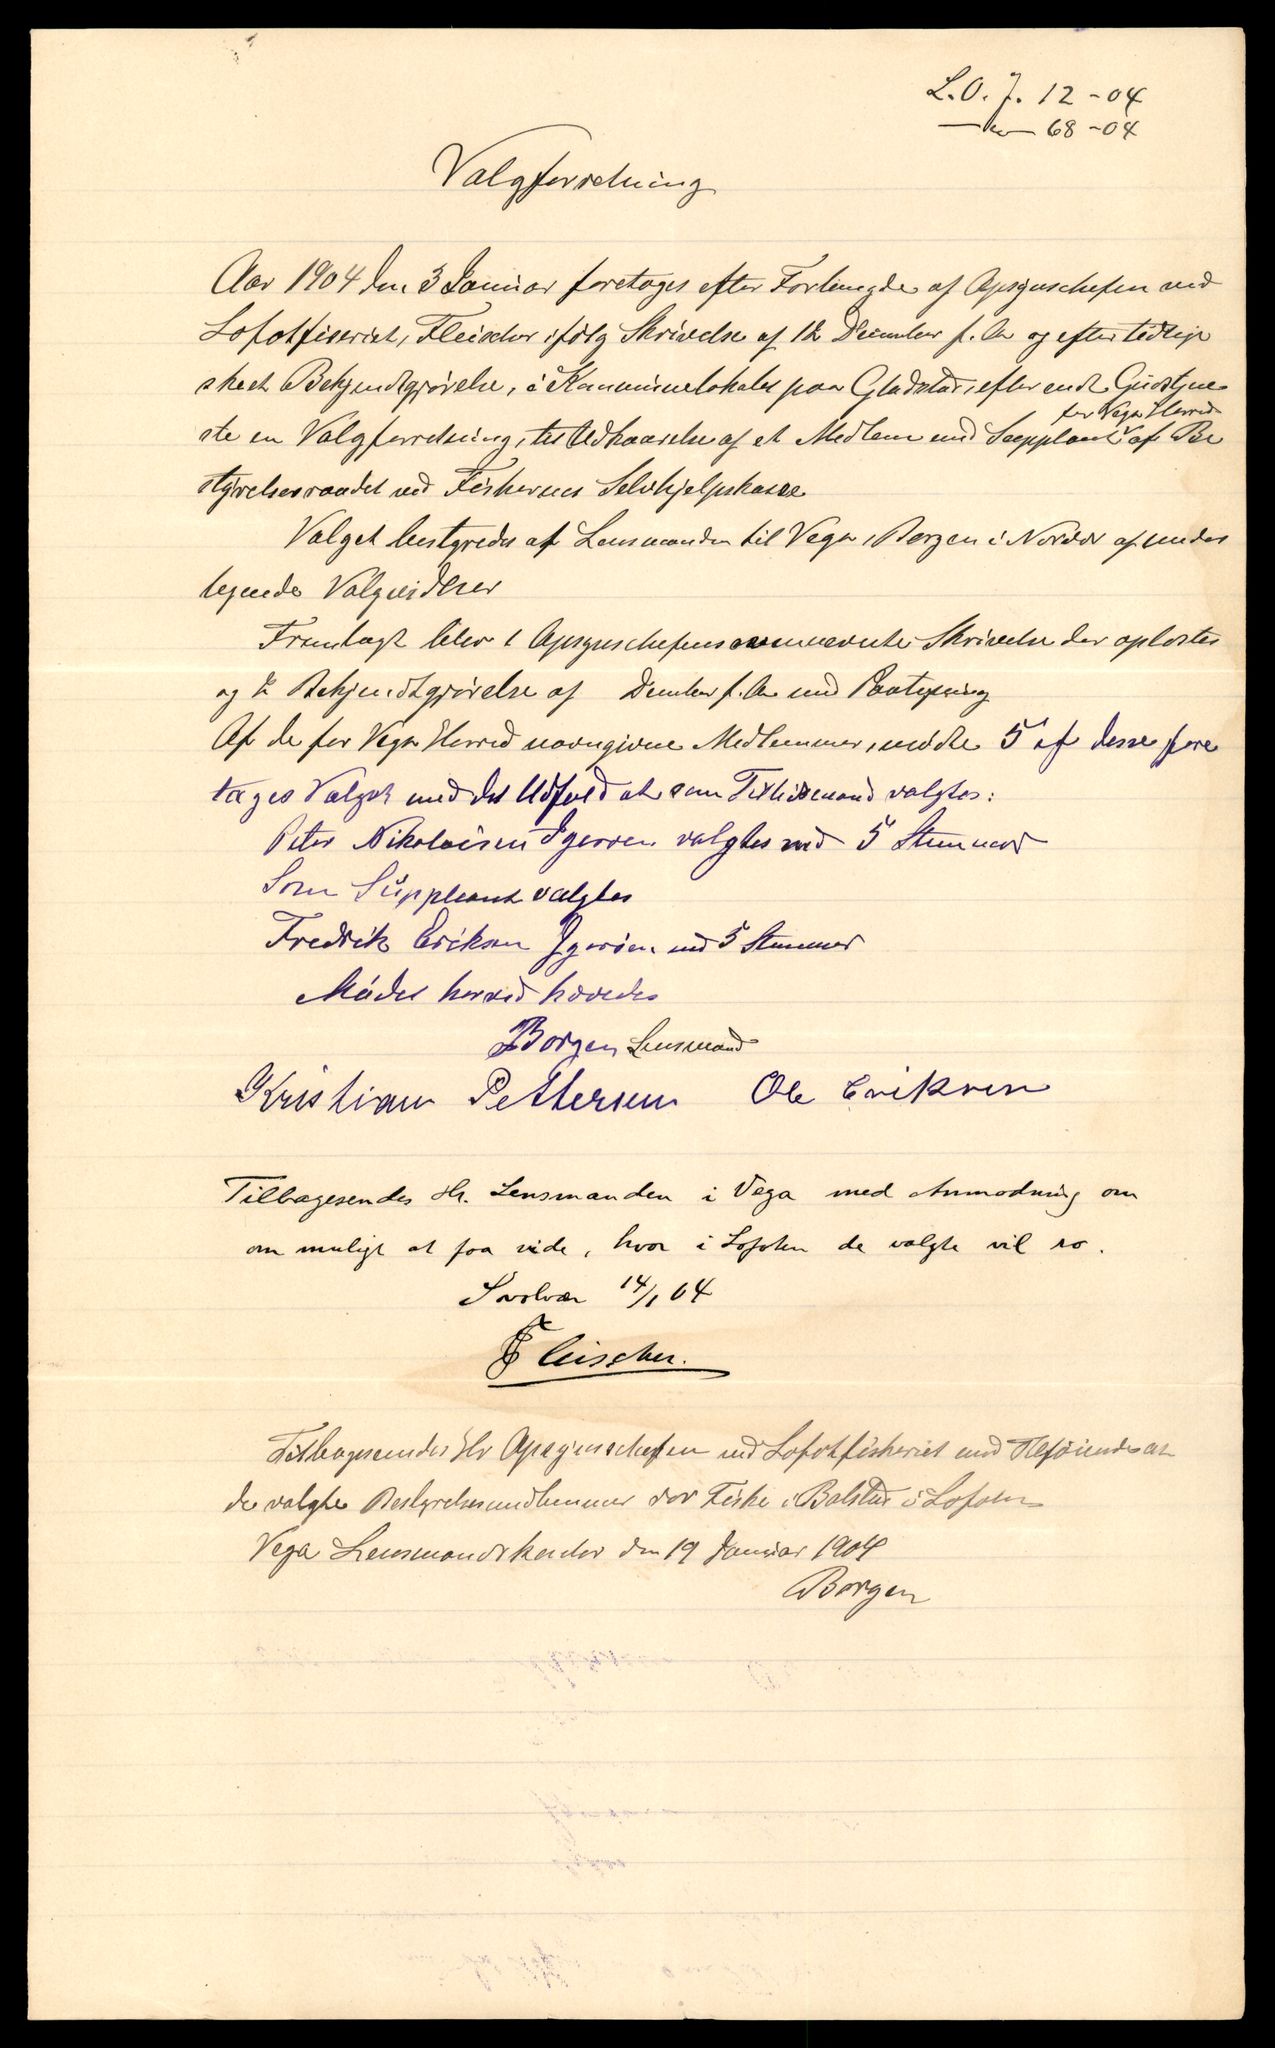 L.O.J. 12-04
— " — 68-04
Valgforretning
Aar 1904 den 3 Januar foretoges efter Forlangde af Opsynschefen ved
Lofotfiseriet, Fleischer ifølg Skrivelse af 12 December f. Aa og efter tidlige
skeet Bekjendtgjørelse, i Kommunelokalet paa Gladstad, efter endt Gudstjene
ste en Valgforretning, til Udkaarelse af et Medlem med Suppleant for Vega Herred af Be
styrelsesraadet ved Fiskernes Selvhjelpskasse
Valget bestyredes af Lensmanden til Vega, Borgen i Nærvær af under
tegnede Valgvidner
Fremlagt blev 1 Opsynschefens Skrivelse der oplæstes
og 2 Bekjendtgjørelse af December f. Aa med Paategning
Af de for Vega Herred navngivne Medlemmer, mødte 5 af disse fore
toges Valget med det Udfald at som Tillidsmand valgtes:
Peter Nikolaisen Igerøen valgtes med 5 Stemmer
Som Suppleant valgtes
Fredrik Eriksen Igerøen med 5 Stemmer
Mødet herved hævedes
Borgen Lensmand
Kristian Pettersen Ole Eriksen
Tilbagesendes Hr. Lensmanden i Vega med Anmodning om
om muligt at faa vide, hvor i Lofoten de valgte vil ro.
Svolvær 14/1 04
Fleischer.
Tilbagesendes Hr Opsynschefen ved Lofotfiskeriet med Tilføiende at
de valgte Bestyrelsesmedlemmer ror Fiske i Balstad i Lofoten
Vega Lensmandskontor den 19 Januar 1904
Borgen